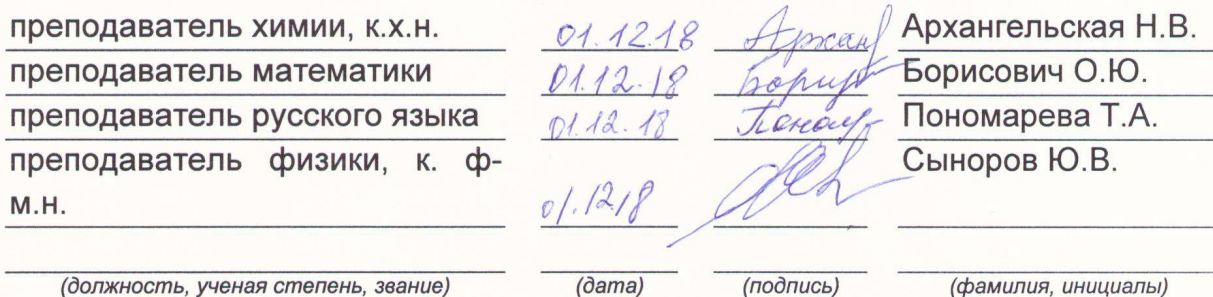 преподаватель химии, к.х.н. 01.12.18 Архан Архангельская Н.В.
преподаватель математики 01.12.18 Борис Борисович О.Ю.
преподаватель русского языка 01.12.18 Поном Пономарева Т.А.
преподаватель физики, к. ф- Сыноров Ю.В.
м.н. 01.12.18
(должность, ученая степень, звание) (дата) (подпись) (фамилия, инициалы)